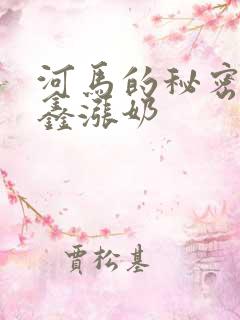 河馬的秘密
鑫漲奶
賈松基